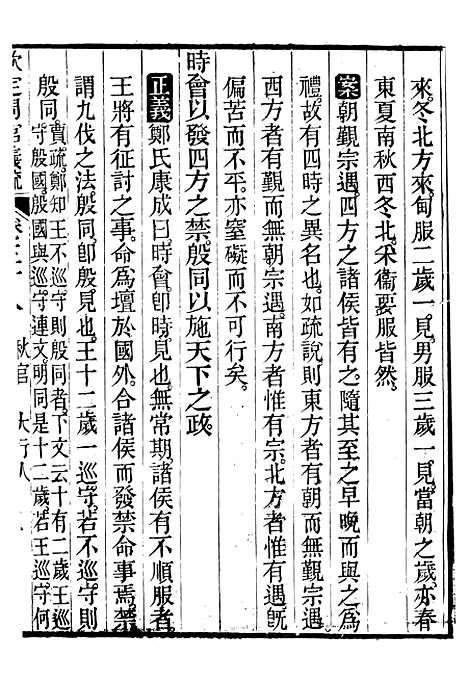 來冬北方來甸服二歲一見男服三歲一見當朝之歲亦春
東夏南秋西冬北采衞要服皆然
案朝覲宗遇四方之諸侯皆有之隨其至之早晚而與之爲
禮故有四時之異名也如疏說則東方者有朝而無覲宗遇
西方者有覲而無朝宗遇南方者惟有宗北方者惟有遇旣
偏苦而不平亦窒礙而不可行矣
時會以發四方之禁殷同以施天下之政
正義鄭氏康成曰時會卽時見也無常期諸侯有不順服者
王將有征討之事命爲壇於國外合諸侯而發禁命事焉禁
謂九伐之法殷同卽殷見也王十二歲一巡守若不巡守則
殷同賈疏鄭知王不巡守則殷同者下文云十有二歲王巡
守殷國殷國與巡守連文明同是十二歲若王巡守何
欽定周官義疏 秋官 大行人